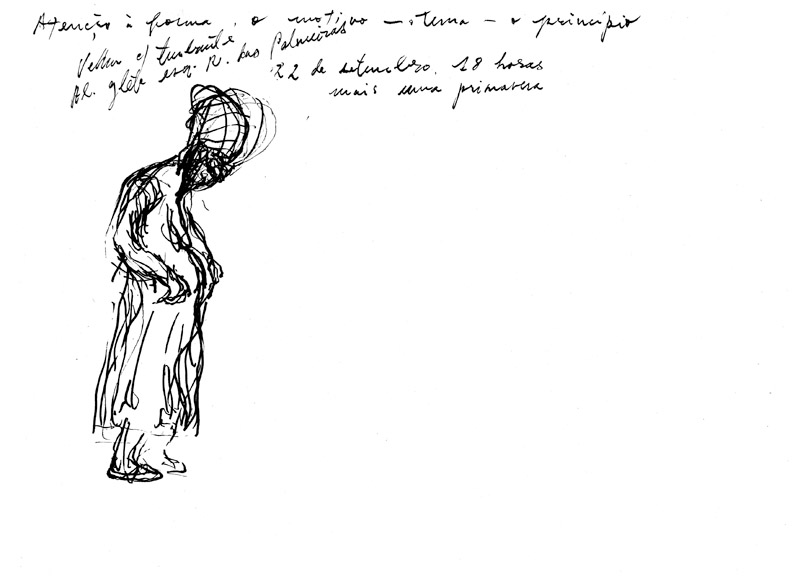 Atenção à forma, o motivo — tema — o princípio
Velha c/ turbante
Al. glete esq. R. das Palmeiras
22 de setembro. 18 horas
mais uma primavera